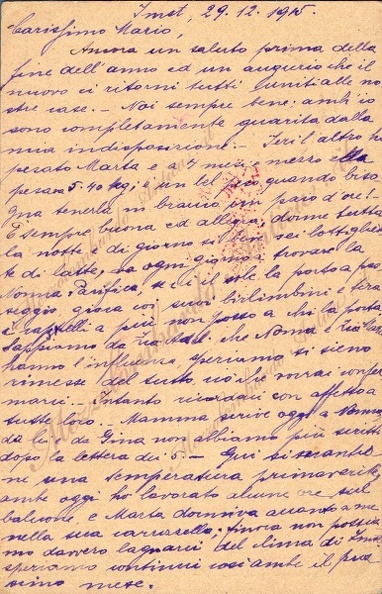 Imst, 29.12.1915.
Carissimo Mario,
Ancora un saluto prima della
fine dell'anno ed un augurio che il
nuovo ci ritorni tutti uniti alle no
stre case. - Noi sempre bene, anch'io
sono completamente guarita dalla
mia indisposizione. - Ieri l'altro ho
pesato Marta e a 4 mesi e mezzo ella
pesava 5.40 kg; è un bel peso quando biso
gna tenerla in braccio un paio d'ore! -
È sempre buona ed allegra, dorme tutta
la notte e di giorno si beve sei bottigliet
te di latte, va ogni giorno a trovare la
Nonna Pacifica, se c'è il sole la porto a pas
seggio, gioca coi suoi birlimbini e tira
i capelli a più non posso a chi la porta.
Sappiamo da che Nonna e
hanno l'influenza, speriamo si sieno
rimesse del tutto, ciò che vorrai confer
marci. - Intanto ricordaci con affetto a
tutte loro. - Mamma scrive oggi a Nonna
da da Gina non abbiamo più scritti
dopo la lettera dei 5. - Qui si mantie
ne una temperatura primaverile,
anche oggi ho lavorato alcune ore sul
balcone, e Marta dormiva quanto a me
nella sua carozzella; finora non possia
mo davvero lagnarci del clima di Imst
speriamo continui così anche il pros
simo mese.